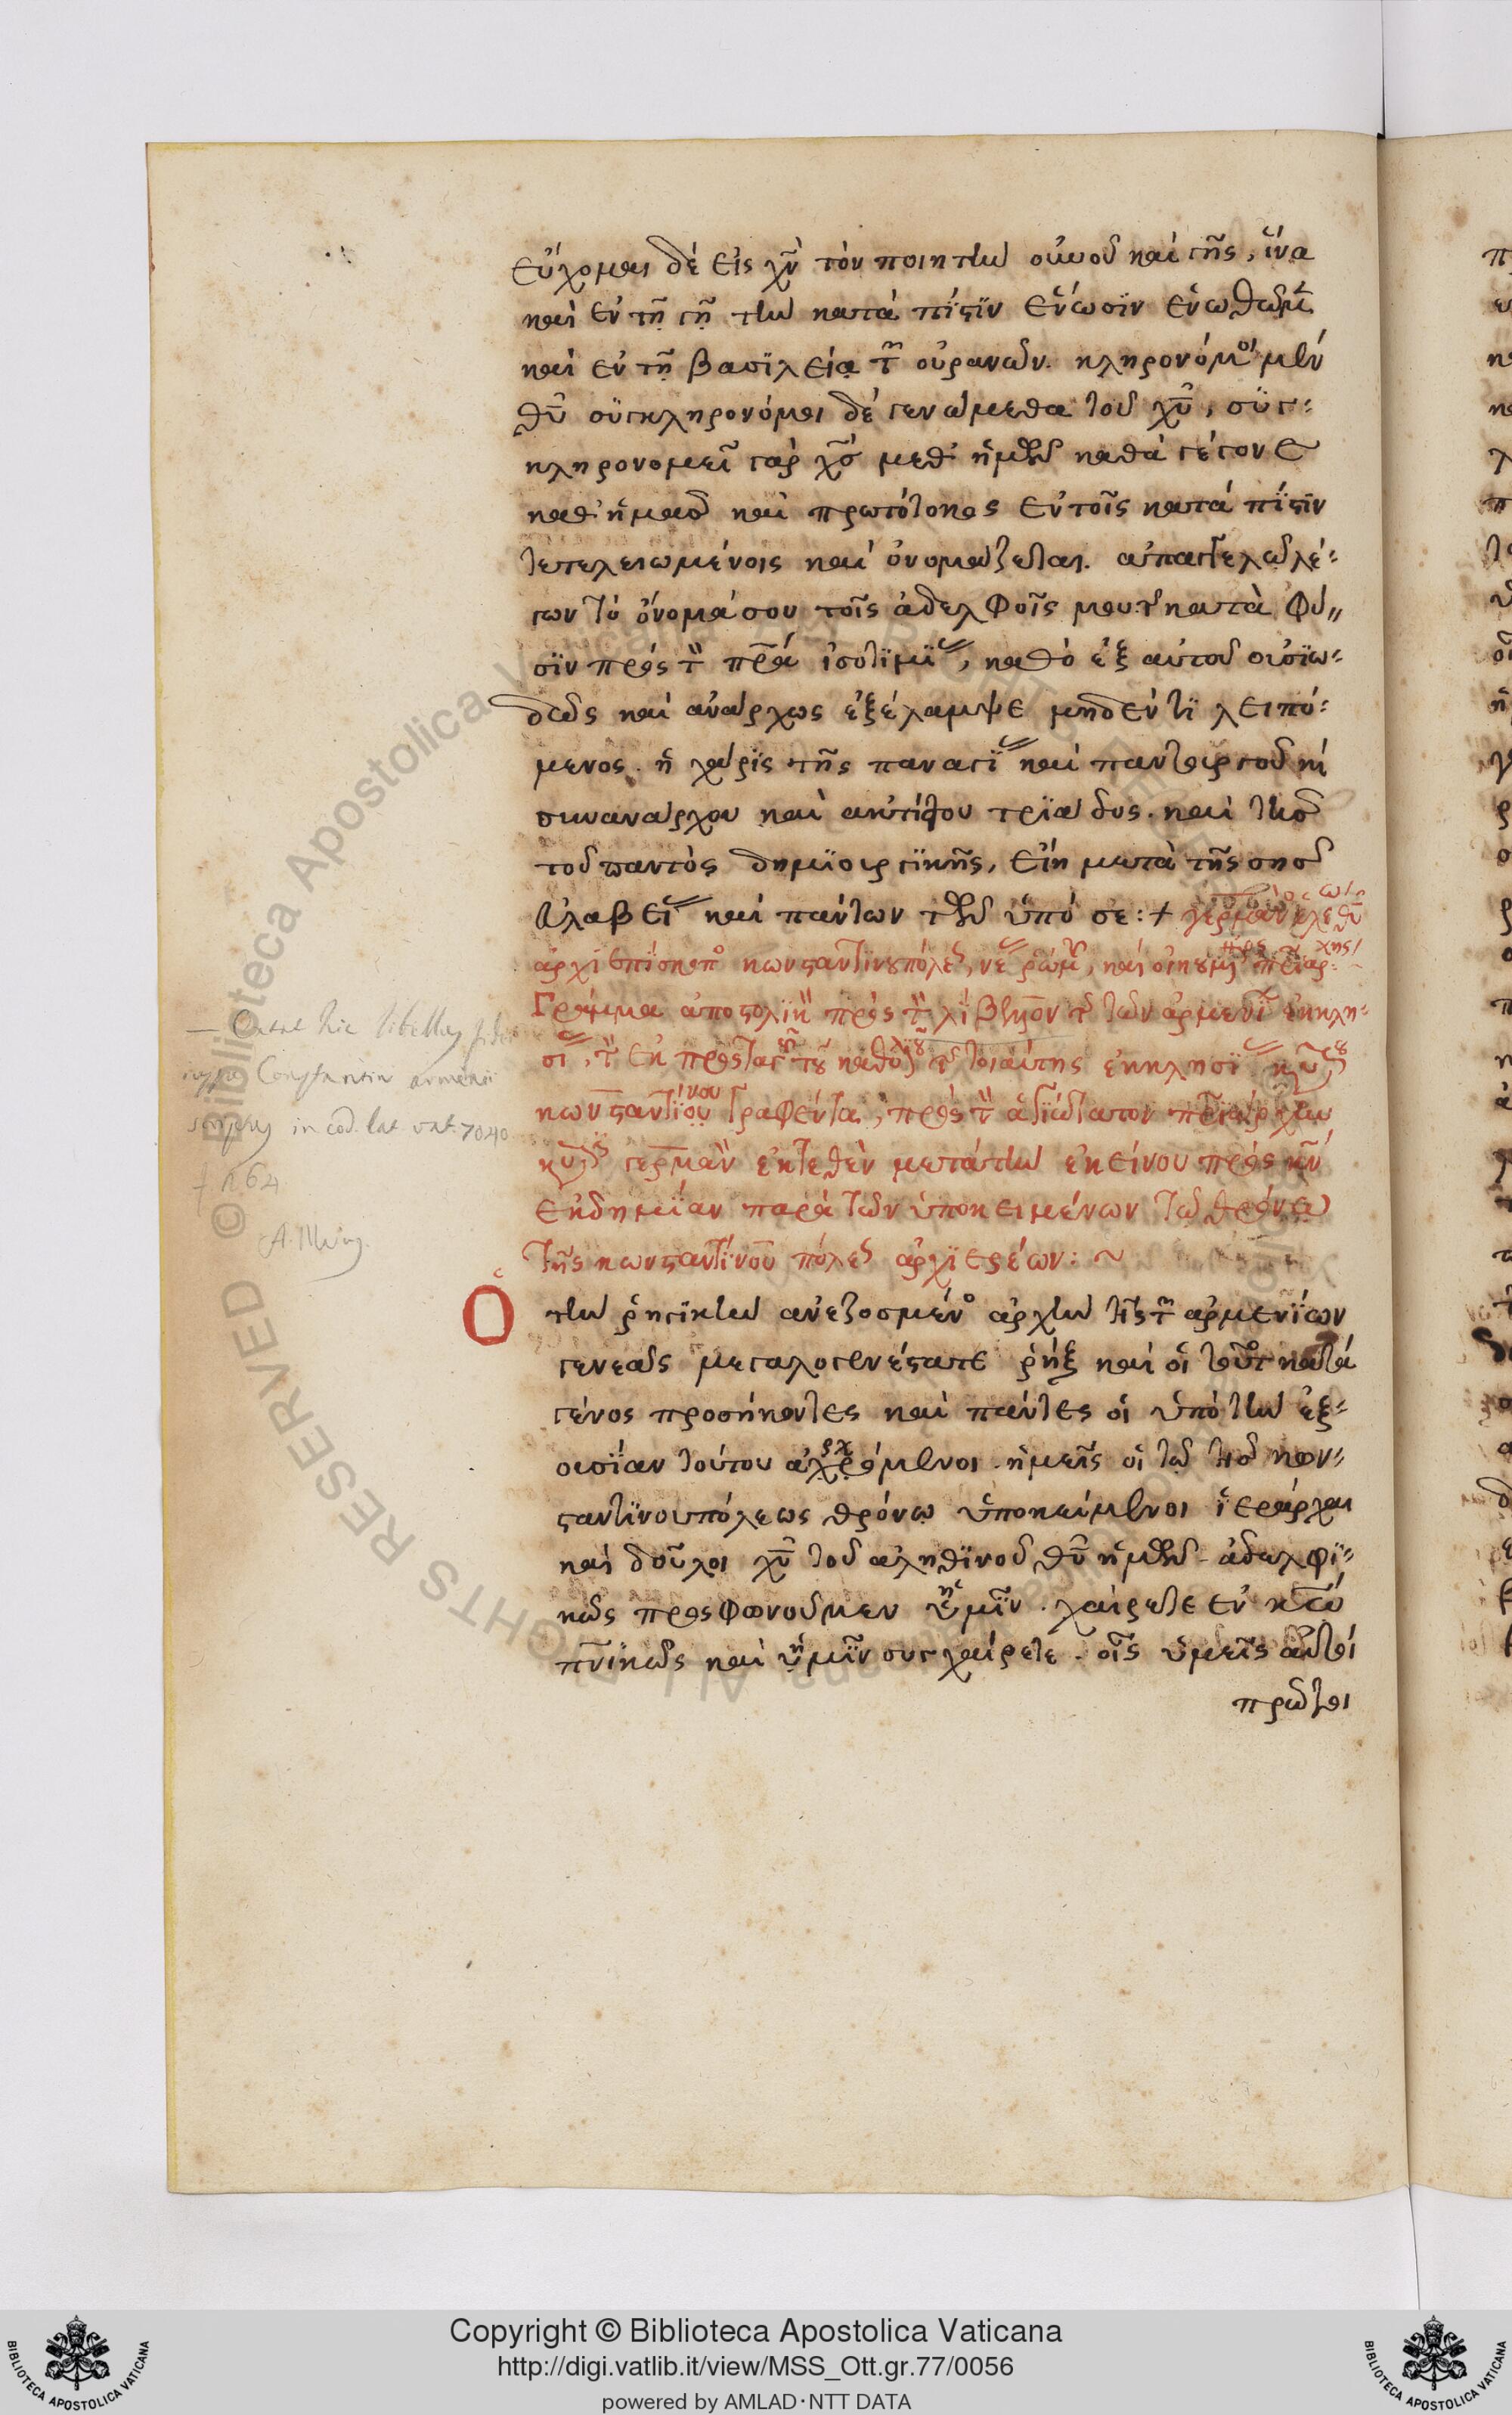 εὔχομαι δὲ εἰς χν τὸν ποιητὴν οὐνοῦ καὶ γῆς, ἵνα
καὶ ἐν τῇ γῇ τὴν κατὰ πίστϊν ἕνωσϊν ἑνωθῶμ
καὶ ἐν τῇ βασϊλεία τ οὐρανῶν. κληρονόμοι μὲν
θυ σϋγκληρονόμοι δὲ γενώμεθα τοῦ χυ, σϋγ-
κληρονομεῖ γὰρ χς μεθ' ἡμῶν καθὰ γέγονε
καθ' ἡμᾶς καὶ πρωτότοκος ἐν τοῖς κατὰ πίστϊν
τετελειωμένοις καὶ ὀνομάζεται. ἀπαγγελῶ λέ-
γων τὸ ὄνομά σου τοῖς ἀδελφοῖς μου. κατὰ φύ-
σϊν πρὸς τ πρα ἰσοτϊμϊ, καθὸ ἐξ αὐτοῦ οὐσϊω-
δῶς καὶ ἀνάρχως ἐξέλαμψε μηδὲν τϊ λειπό-
μενος. ἡ χάρϊς τῆς παναγϊ καὶ παντουργοῦ καὶ
συνανάρχου καὶ ἀκτίστου τρϊάδος. καὶ τῆς
τοῦ παντὸς δημϊουργϊκῆς, εἴη μετὰ τῆς σῆς
εὐλαβεί καὶ πάντων τῶν ὑπό σε: + γερμανὸς ἐλέω θυ
ἀρχιεπίσκοπο κωνσταντϊνουπόλε, νέ ῥώμ, καὶ οἰκουμ πριάρχης
Γράμμα ἀποστολϊκ πρὸς τ λίβϊησον τ τῶν ἀρμενί ἐκκλη-
σί, τ ἐκ προσταγῆ τοῦ καθολϊκοῦ τ τοιαύτης ἐκκλησϊ κυρ
κωνσταντίνου γραφέντα, πρὸς τ ἁγϊώτατον πριάρχην
κυρ γερμαν ἐκτεθὲν μετὰ τὴν ἐκείνου πρὸς κν
ἐκδημϊαν παρὰ τῶν ὑποκειμένων τῷ θρόνω
τῆς κωνσταντϊνου πόλε ἀρχϊερέων: ~
Ὁ τὴν ῥηγϊκὴν ἀνεζοσμένο ἀρχὴν τῆς τ ἀρμενϊων
γενεᾶς μεγαλογενέστατε ῥήξ καὶ οἱ τουτ κατὰ
γένος προσήκοντες καὶ πάντες οἱ ὑπὸ τὴν ἐξ-
ουσϊαν τούτου ἀρχόμενοι. ἡμεῖς οἱ τῷ τῆς κων-
σταντϊνουπόλεως θρόνω ὑποκείμενοι ἱεράρχαι
καὶ δοῦλοι χυ τοῦ ἀληθϊνοῦ θυ ἡμῶν. ἀδελφϊ-
κῶς προσφωνοῦμεν ὑμῖν. χαίρετε ἐν κω
πνϊκῶς καὶ ἡμῖν συγχαίρετε. οἷς ὑμεῖς αὐτοί
πρῶτοι
Extat hic libellus fidei
iussu Constantini armenii
scriptus in cod. lat. vat. 7040
f. 164
A. Maius
Copyright © Biblioteca Apostolica Vaticana
http://digi.vatlib.it/view/MSS_Ott.gr.77/0056
powered by AMLAD·NTT DATA
BIBLIOTECA APOSTOLICA VATICANA
BIBLIOTECA APOSTOLICA VATICANA